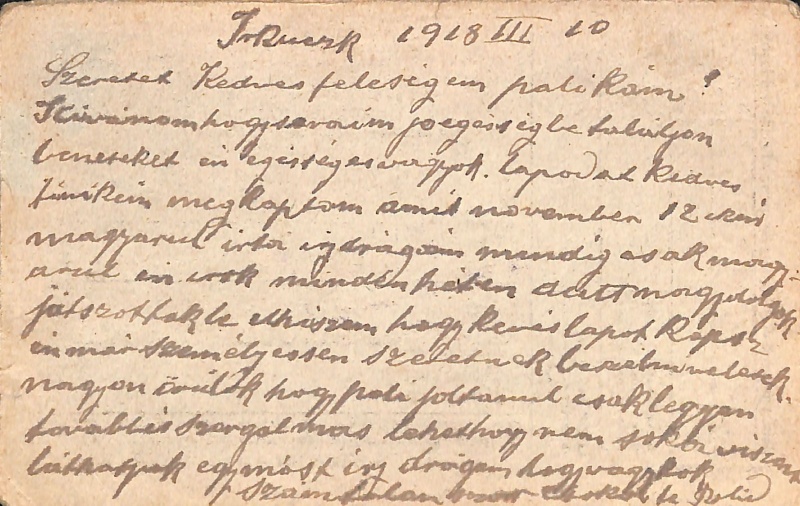 Irkuczk 1918 III 10
Szeretet Kedves feleségem palikám!
Kivánom hogy soraim jo egésségbe találjon
beneteket én egésséges vagyok. lapodat kedves
megkaptom amit november 12 ikén
magyarul irtá irj drágám mindig csak magy-
arul én irok minden héten
játszottak le elhiszem hogy kevés lapot kapsz
én már személyessen szeretnék beszélni veletek.
nagyon örülök hogy pali jol tanul csak legyen
továbbis szorgalmas lehet hogy nem sokára viszont
láthatjuk egymást irj drágám hogy vagytok
számtalanszor csokol te